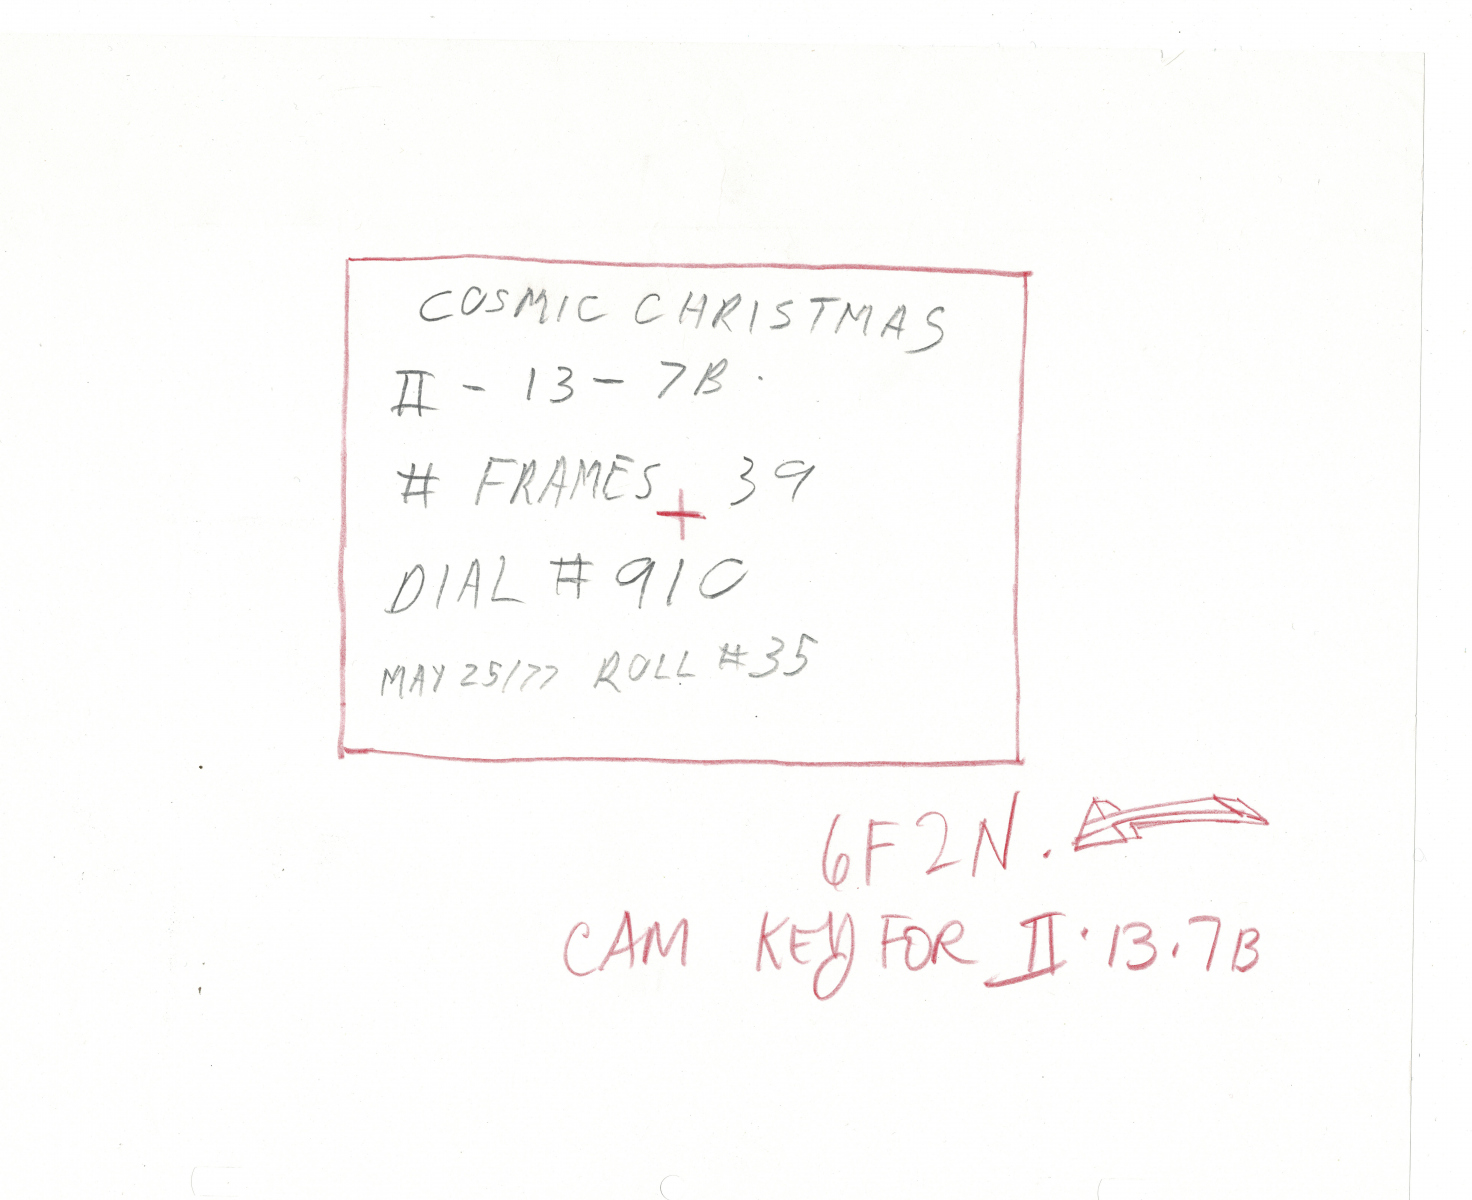 COSMIC CHRISTMAS
II - 13 - 7B.
# FRAMES 39
DIAL # 910
MAY 25/77 ROLL #35
6F2N.
CAM KEY FOR II.13.7B